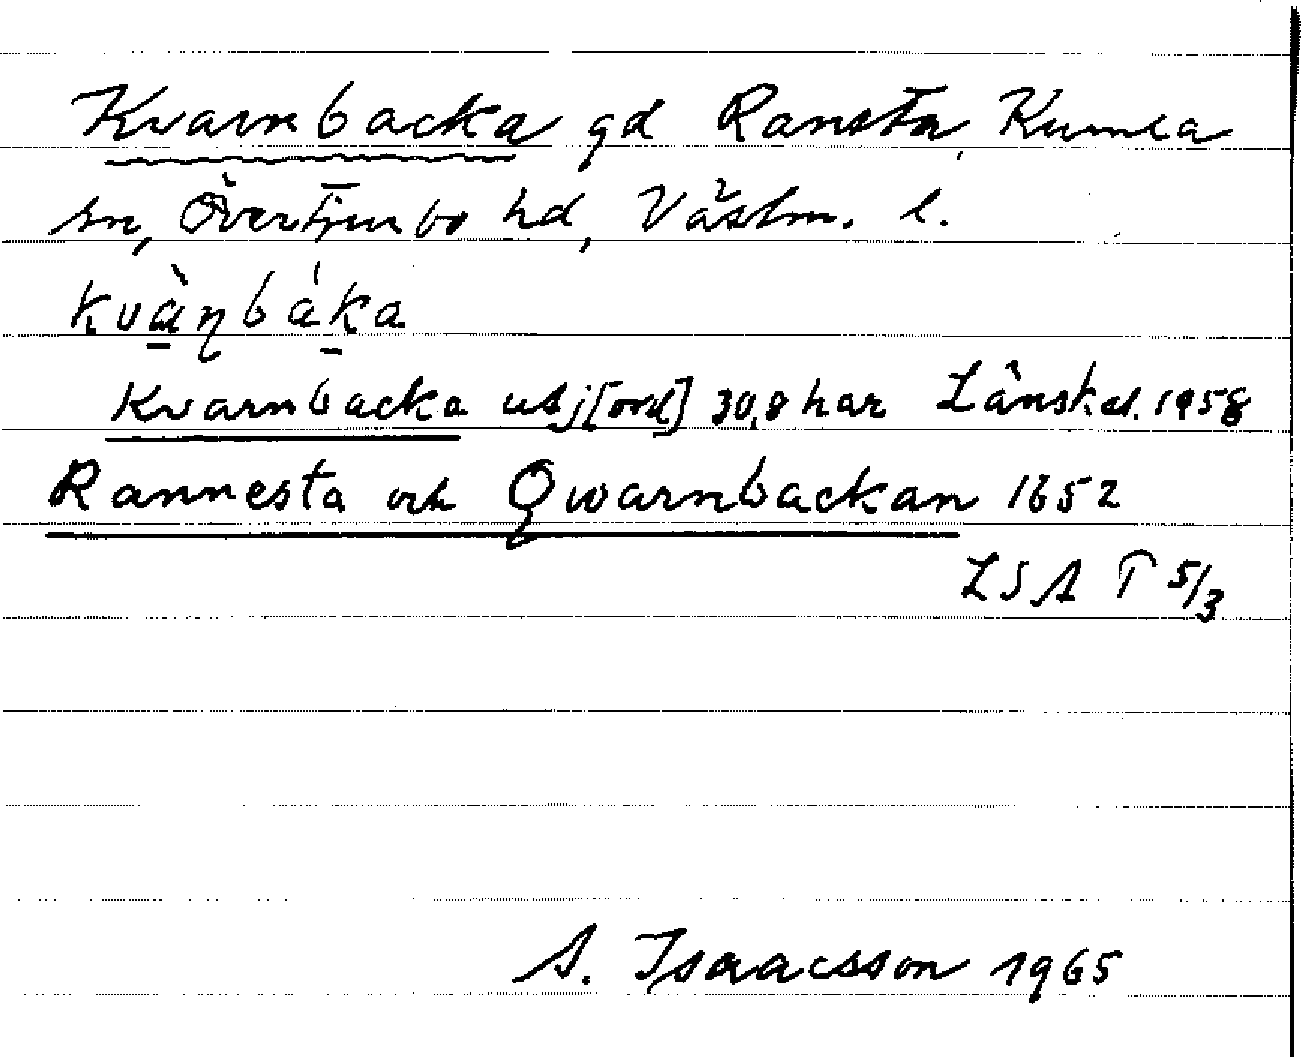 Kvarnbacka gd Ransta, Kumla
sn, Övertjurbo hd, Västm. l.
kvà̱ṇbáka
Kvarnbacka utj[ord] 30,8 har Länskal. 1958
Rannesta och Qwarnbackan 1652
LSA T 5/3
A. Isaacsson 1965